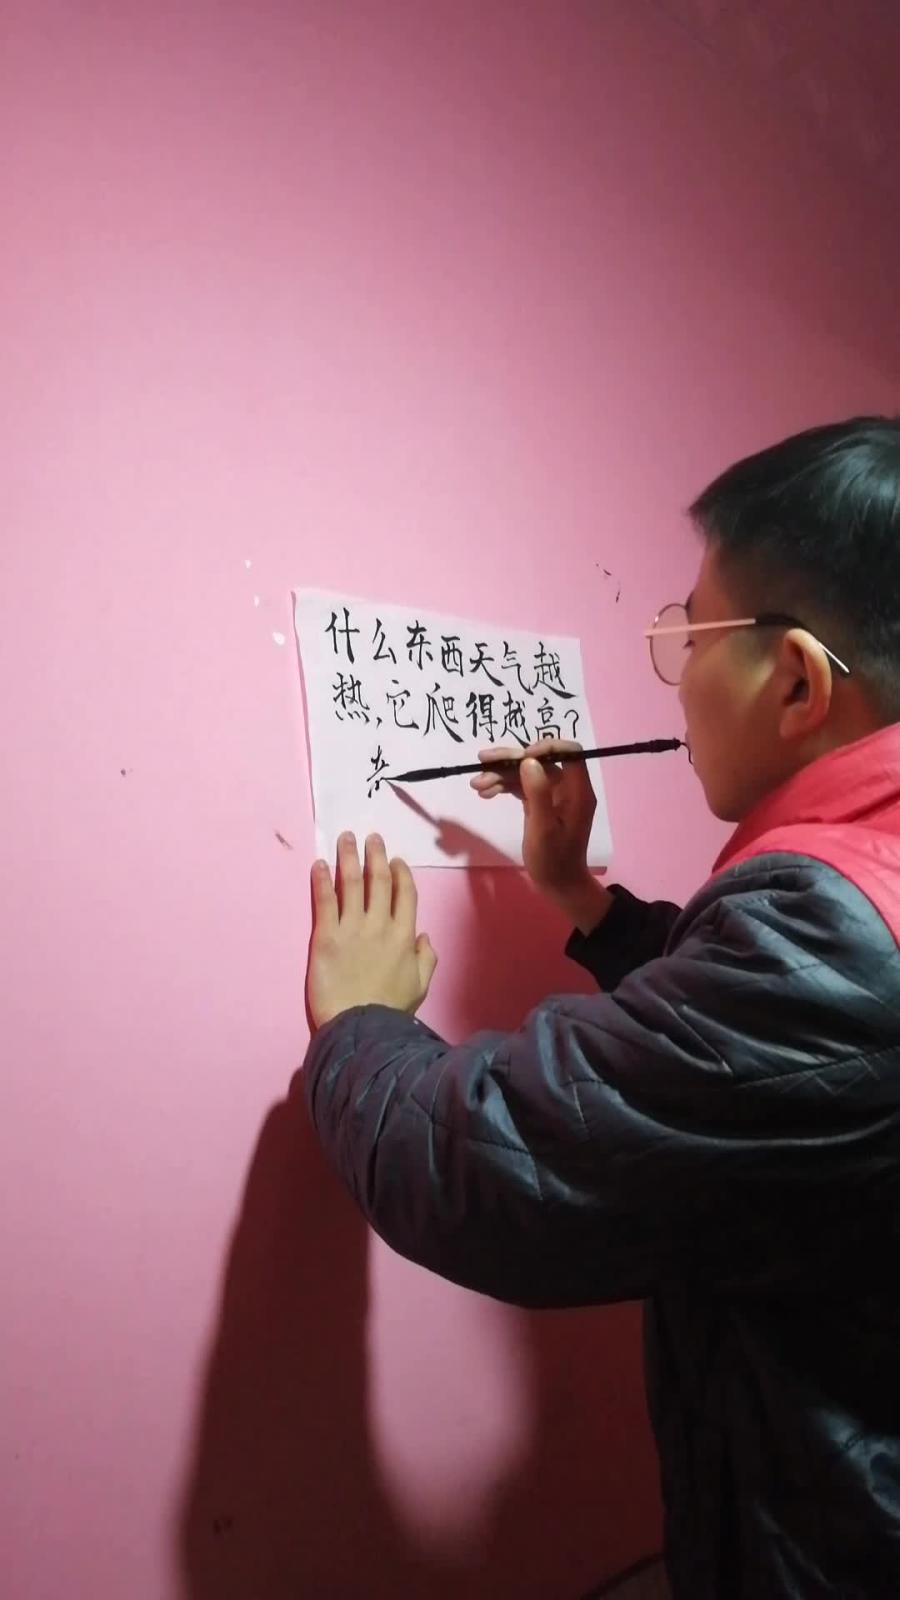 什么东西天气越
热,它爬得越高?